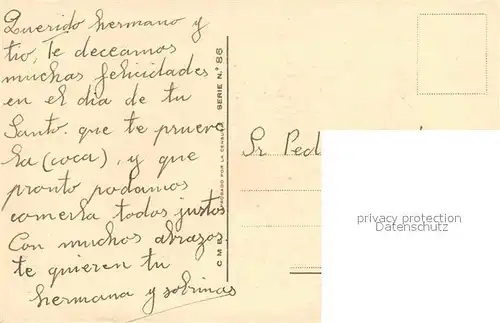 Querido hermano y
tio, Te deceamos
muchas felicidades
en el dia de tu
Santo. que te prueve
la (coca), y que
pronto podamos
comerla todos justos
Con muchos abrazos.
te quieren tu
hermana y sobrinas
C M B
APROBADO POR LA CENSURA
SERIE N.º 86
Sr Ped
privacy protection
Datenschutz